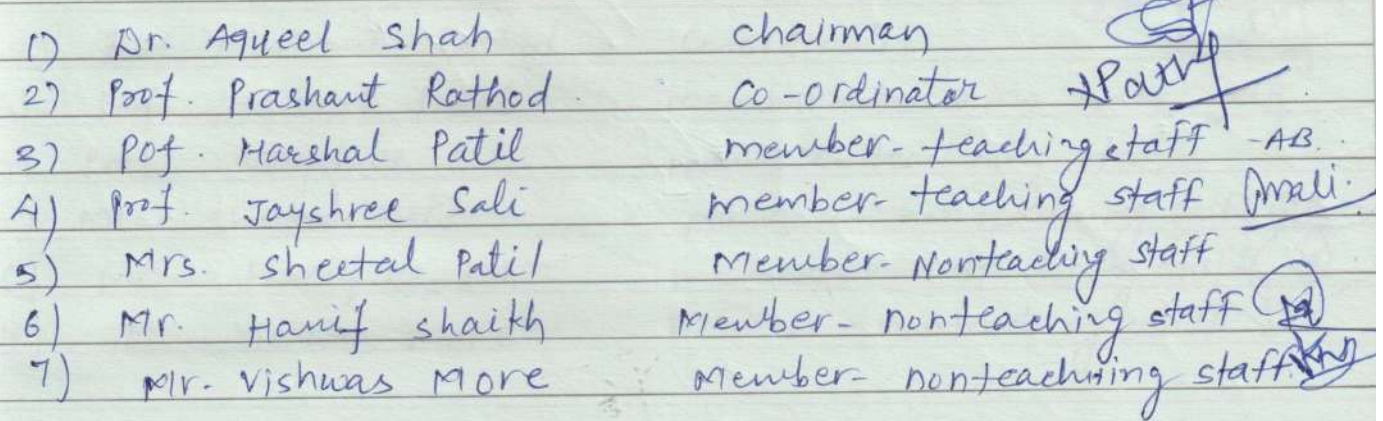 1) Dr. Aqueel Shah chairman
2) Prof. Prashant Rathod. Co-ordinator
3) Pof. Harshal Patil member- teaching staff -AB.
4) Prof. Jayshree Sali member- teaching staff
5) Mrs. Sheetal Patil Member- Nonteaching staff
6) Mr. Hanif shaikh Member- nonteaching staff
7) Mr. Vishwas More Member- nonteachiing staff